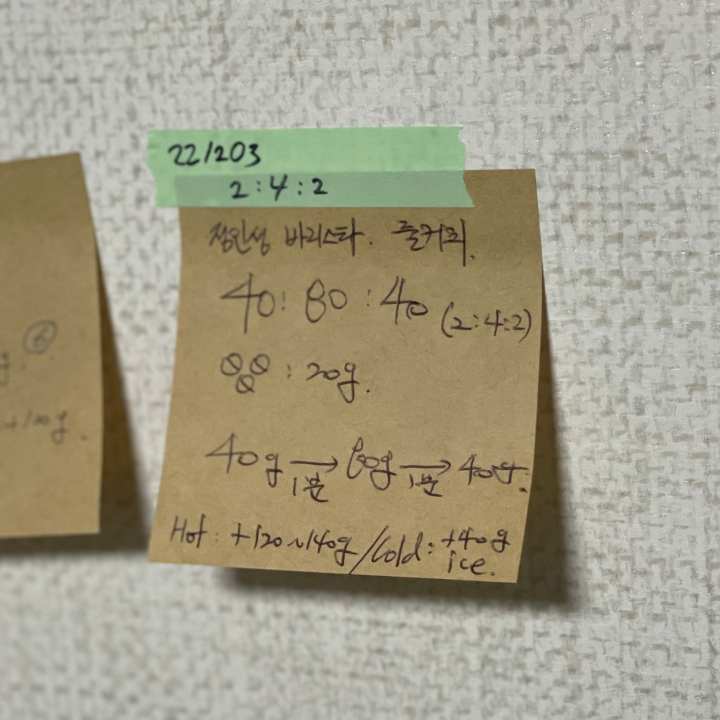 22/203
2:4:2
정인성 바리스타. 풀커피.
40: 80 : 40 (2:4:2)
: 20g.
40g → 80g → 40g.
1분 1분
Hot: +120~140g / Cold: +40g
ice.
+100g.